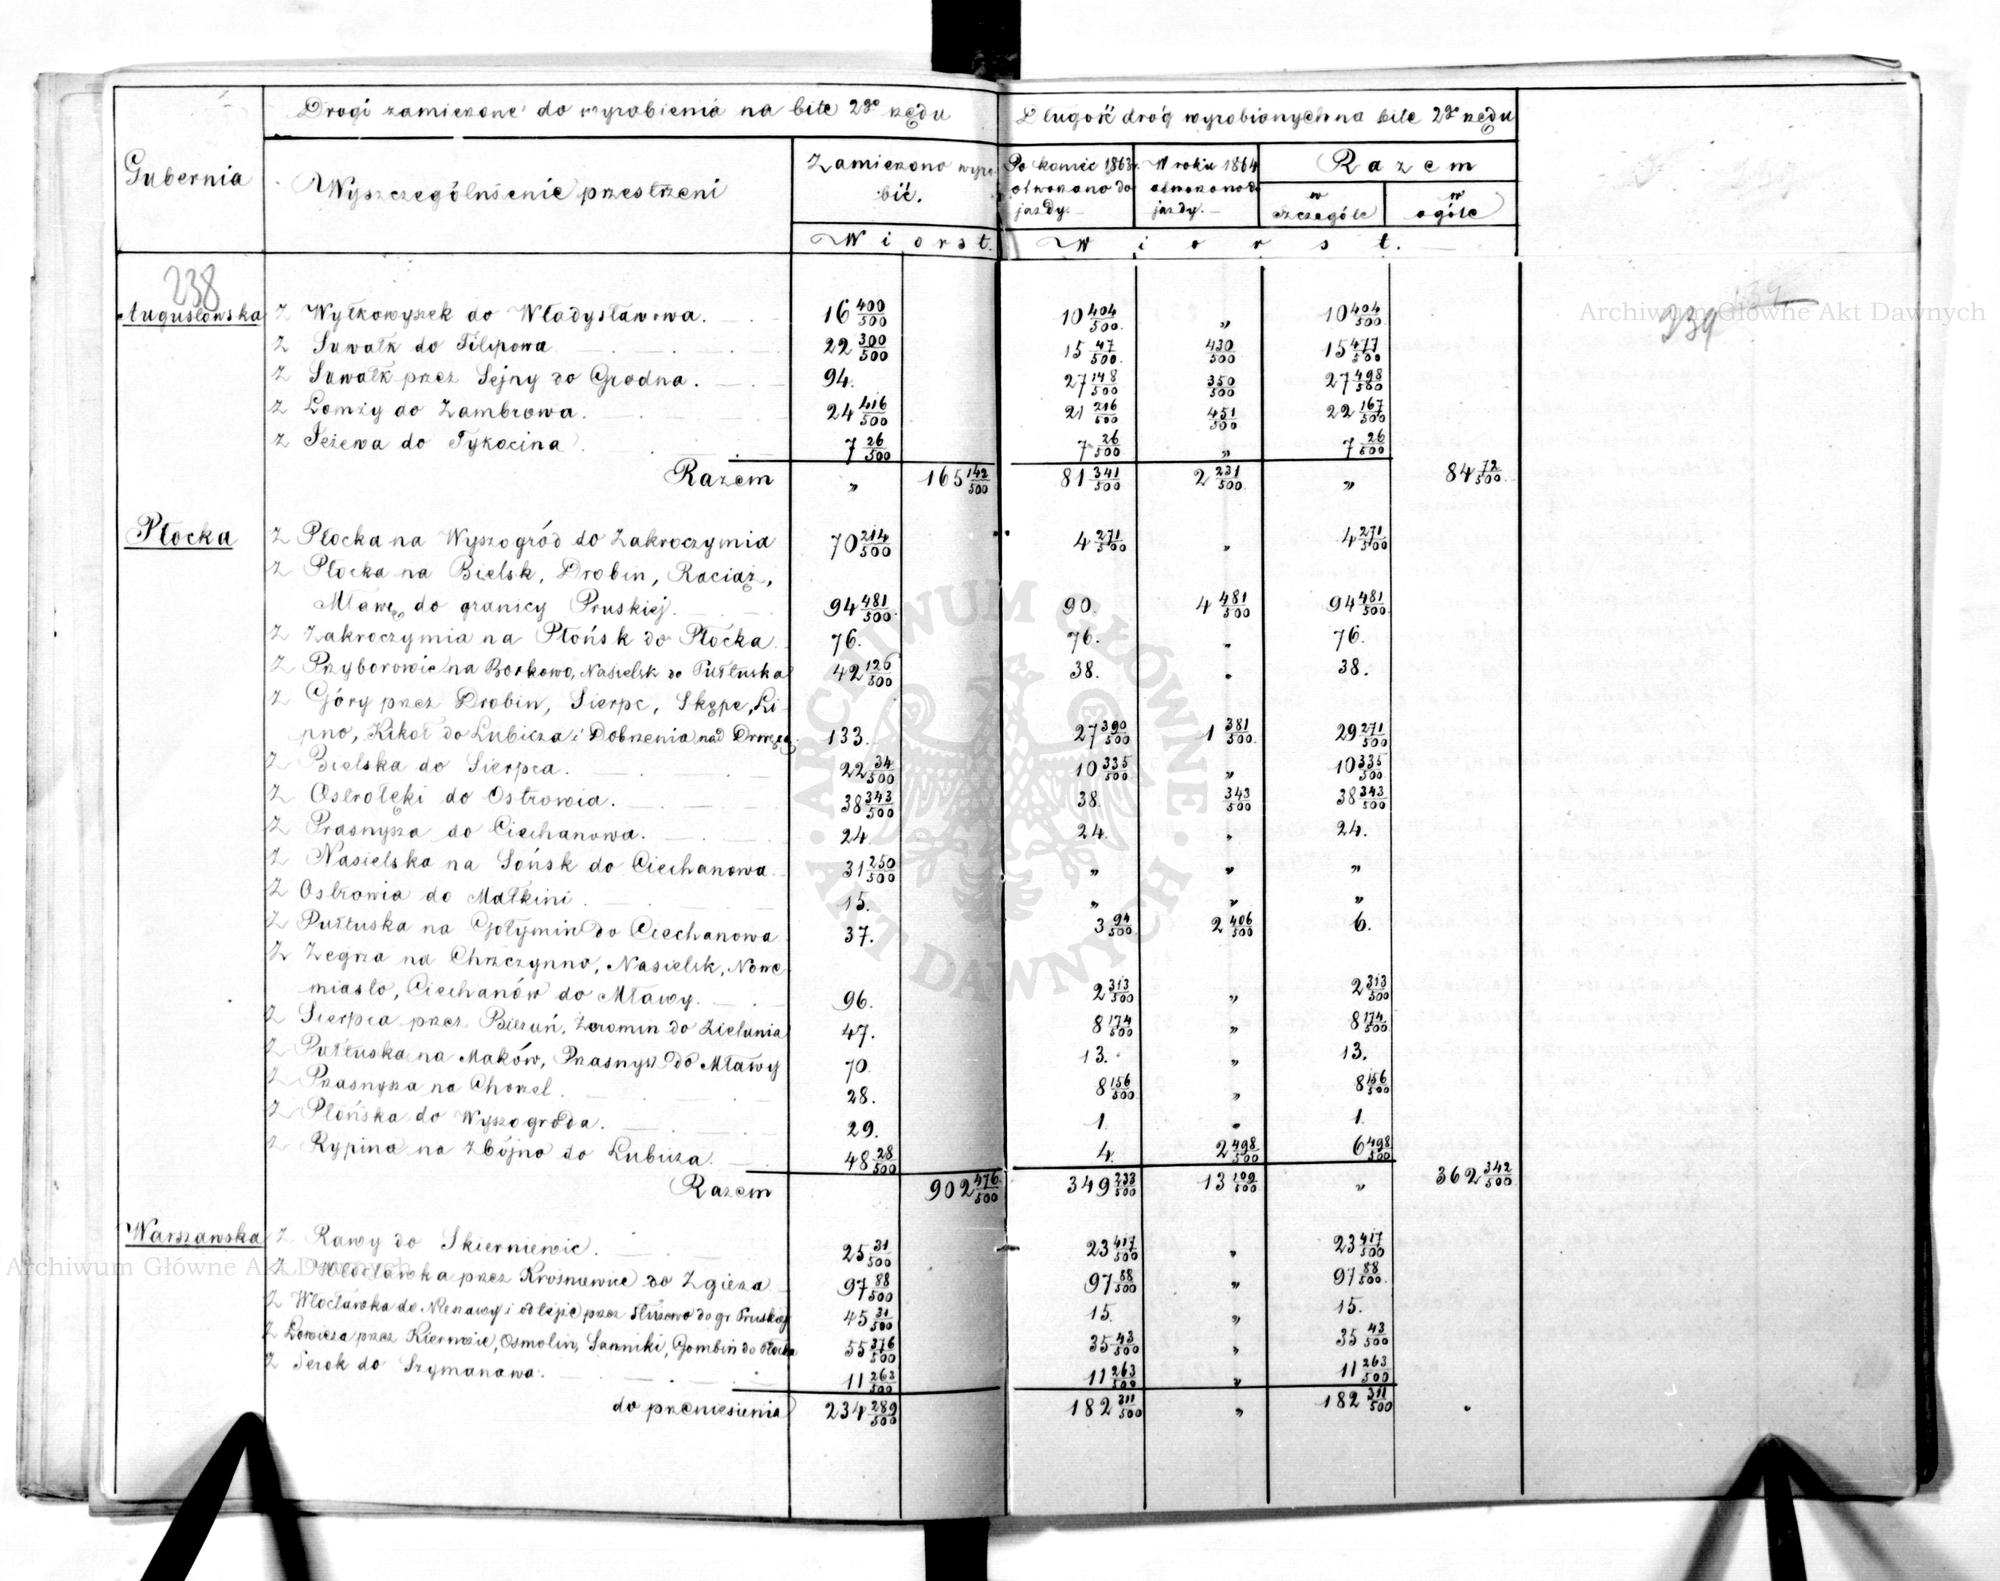 Drogi zamierzone do wyrobienia na bite 2go rzędu
Długość dróg wyrobionych na bite 2go rzędu
Gubernia
Wyszczególnienie przestrzeni
Zamierzono wyro-
bić.
Po koniec 1863 r.
otworzono do
jazdy.
W roku 1864
otworzono do
jazdy.
Razem
w
szczególe
w
ogóle
Wiorst.
Wiorst.
238
239
Augustowska Z Wyłkowyszek do Władysławowa. 16 400/500 10 404/500 „ 10 404/500
Z Suwałk do Filipowa 22 300/500 15 47/500 430/500 15 477/500
Z Suwałk przez Sejny do Grodna. 94. 27 148/500 350/500 27 498/500
Z Łomży do Zambrowa. 24 416/500 21 216/500 451/500 22 167/500
Z Jeżewa do Tykocina 7 26/500 7 26/500 „ 7 26/500
Razem „ 165 142/500 81 341/500 2 231/500 „ 84 72/500
Płocka Z Płocka na Wyszogród do Zakroczymia 70 214/500 4 271/500 „ 4 271/500
Z Płocka na Bielsk, Drobin, Raciąż,
Mławę do granicy Pruskiej. 94 481/500 90. 4 481/500 94 481/500
Z Zakroczymia na Płońsk do Płocka 76. 76. „ 76.
Z Przyborowic na Borkowo, Nasielsk do Pułtuska 42 126/500 38. „ 38.
Z Góry przez Drobin, Sierpc, Skępe, Li-
pno, Kikoł do Lubicza i Dobrzenia nad Drwęcą 133. 27 390/500 1 381/500 29 271/500
Z Bielska do Sierpca. 22 34/500 10 335/500 „ 10 335/500
Z Ostrołęki do Ostrowia. 38 343/500 38. 343/500 38 343/500
Z Prasnysza do Ciechanowa. 24. 24. „ 24.
Z Nasielska na Sońsk do Ciechanowa 31 250/500 „ „ „
Z Ostrowia do Małkini 15. „ „ „
Z Pułtuska na Gołymin do Ciechanowa 37. 3 94/500 2 406/500 6.
Z Zegrza na Chrczynno, Nasielsk, Nowe
miasto, Ciechanów do Mławy. 96. 2 313/500 „ 2 313/500
Z Sierpca przez Bieżuń, Żeromin do Zielunia 47. 8 174/500 „ 8 174/500
Z Pułtuska na Maków, Prasnysz do Mławy 70. 13. „ 13.
Z Prasnysza na Chorzel. 28. 8 156/500 „ 8 156/500
Z Płońska do Wyszogroda. 29. 1. „ 1.
Z Rypina na Zbójno do Lubicza. 48 28/500 4. 2 498/500 6 498/500
Razem 902 476/500 349 233/500 13 109/500 „ 362 342/500
Warszawska Z Rawy do Skierniewic. 25 31/500 23 417/500 „ 23 417/500
Z Włocławka przez Krośniewice do Zgierza 97 88/500 97 88/500 „ 97 88/500
Z Włocławka do Nieszawy i odtąd przez Służewo do gr. Pruskiej 45 31/500 15. „ 15.
Z Łowicza przez Kiernozie, Osmolin, Sanniki, Gombin do Płocka 55 376/500 35 43/500 „ 35 43/500
Z Serok do Szymanowa. 11 263/500 11 263/500 „ 11 263/500
do przeniesienia 234 289/500 182 311/500 „ 182 311/500
Archiwum Główne Akt Dawnych
Archiwum Główne Akt Dawnych
ARCHIWUM GŁÓWNE AKT DAWNYCH